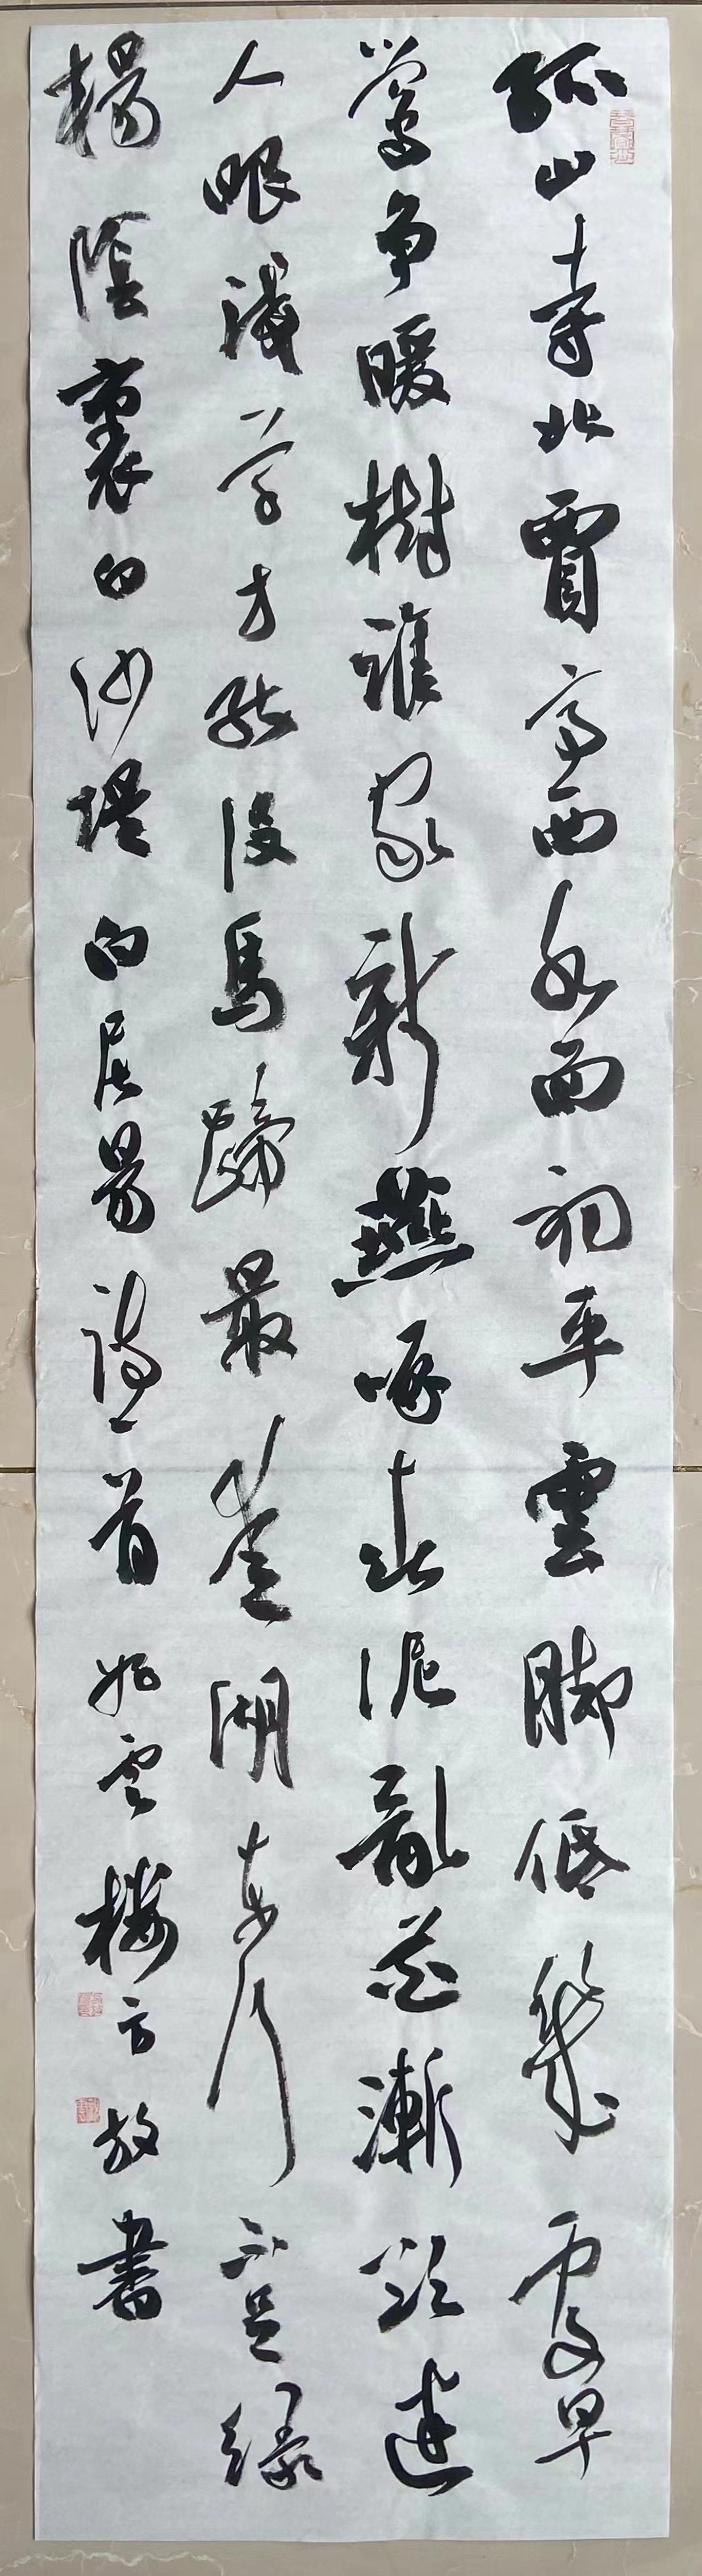 孤山寺北賈亭西水面初平雲脚低幾處早
鶯争暖樹誰家新燕啄春泥亂花漸欲迷
人眼淺草才能没馬蹄最愛湖東行不足緑
楊陰裏白沙堤白居易詩一首如雲樓方放書